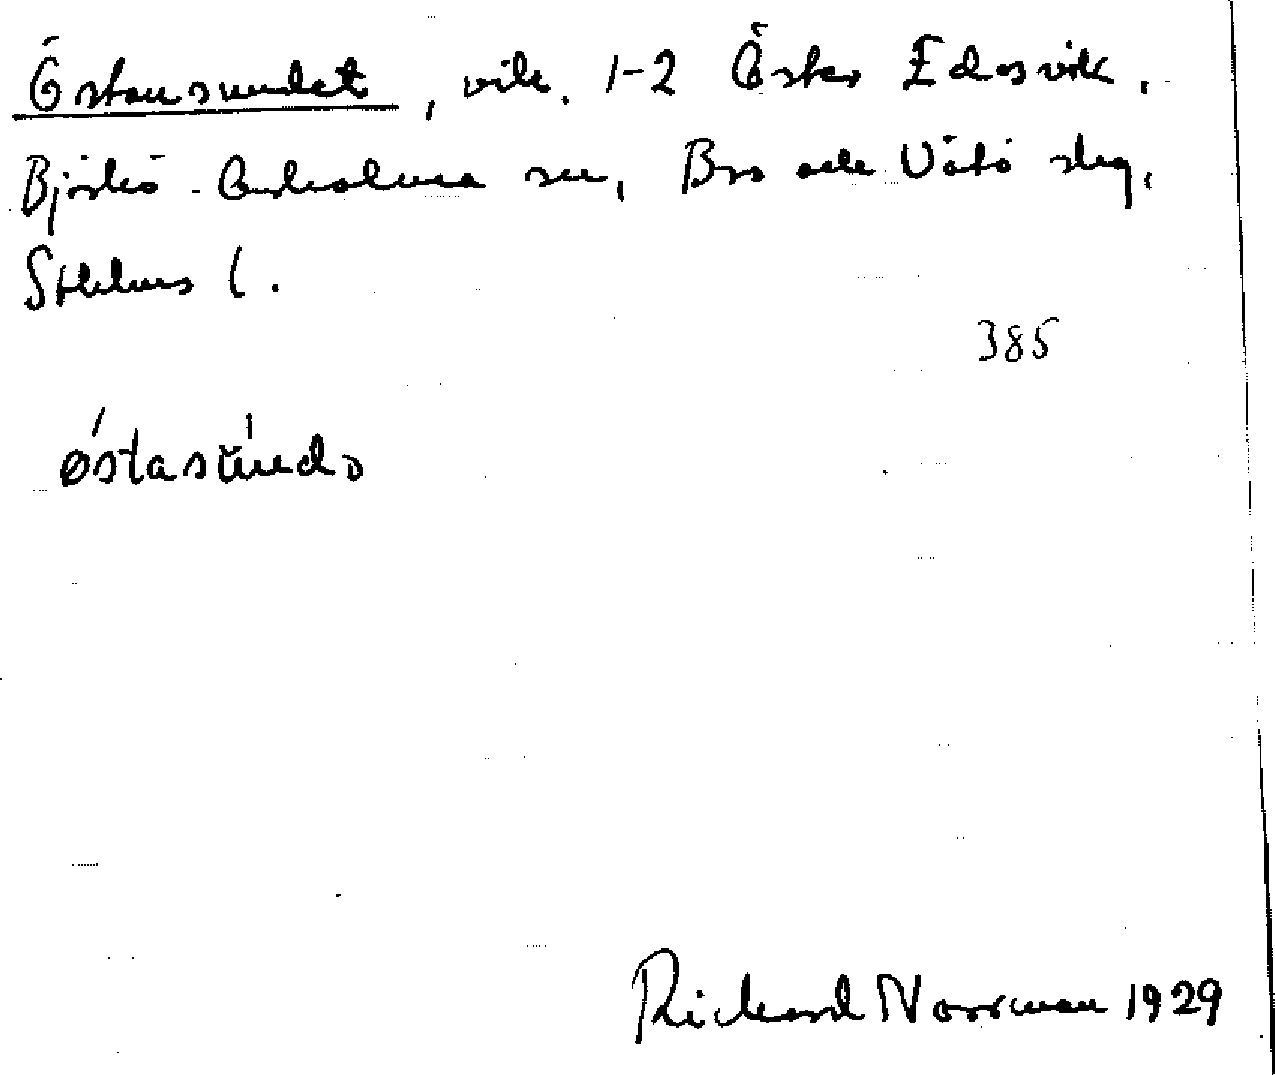 Östansundet, vik. 1-2 Öster Edsvik.
Björkö-Arholma sn, Bro och Vätö skg,
Sthlms l.
385
østasund
Richard Norrman 1929